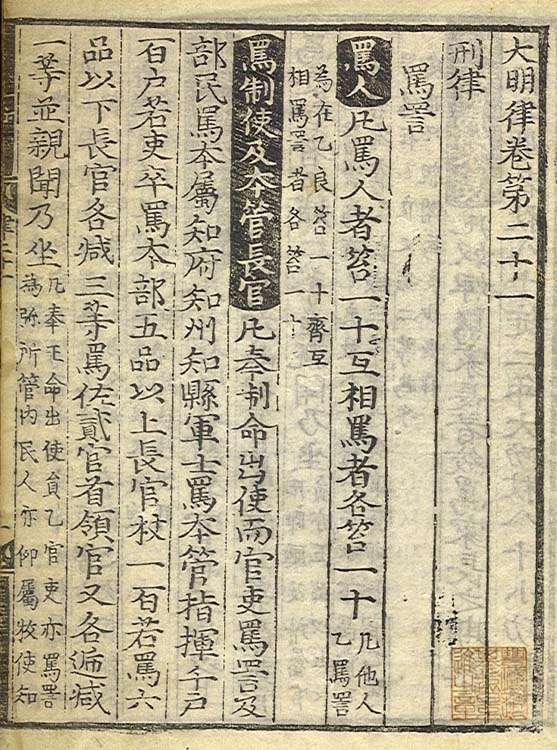 大明律卷第二十一
刑律
罵詈
罵人 凡罵人者笞一十互相罵者各笞一十 凡他人乙罵詈
爲在乙良笞一十齊互
相罵詈者各笞一十
罵制使及本管長官 凡奉制命出使而官吏罵詈及
部民罵本屬知府知州知縣軍士罵本管指揮千戶
百户若吏卒罵本部五品以上長官杖一百若罵六
品以下長官各减三等罵佐貳官首領官又各遞减
一等並親聞乃坐 凡奉王命出使員乙官吏亦罵詈
爲弥所管內民人亦仰屬牧使知